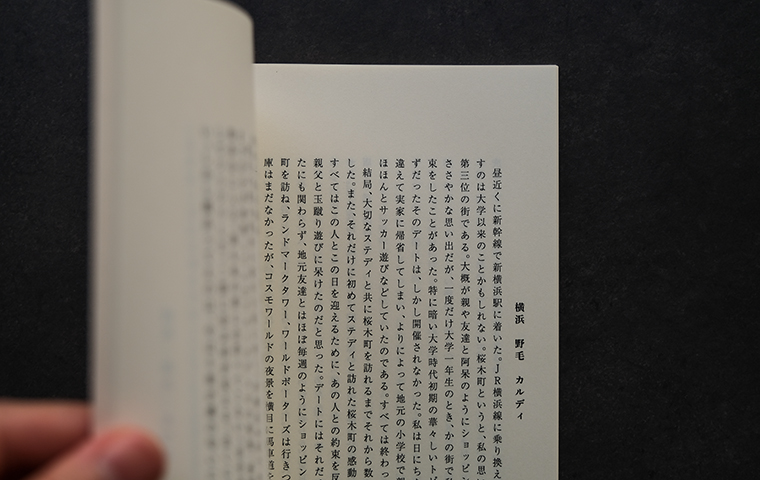 横浜　野毛　カルディ
昼近くに新幹線で新横浜駅に着いた。ＪＲ横浜線に乗り換え
すのは大学以来のことかもしれない。桜木町というと、私の思い
第三位の街である。大概が親や友達と阿呆のようにショッピン
ささやかな思い出だが、一度だけ大学一年生のとき、かの街で
束をしたことがあった。特に暗い大学時代初期の華々しいトピ
ずだったそのデートは、しかし開催されなかった。私は日にち
違えて実家に帰省してしまい、よりによって地元の小学校で
ほほんとサッカー遊びなどしていたのである。すべては終わっ
結局、大切なステディと共に桜木町を訪れるまでそれから数
した。また、それだけに初めてステディと訪れた桜木町の感動
すべてはこの人とこの日を迎えるために、あの人との約束を反
親父と玉蹴り遊びに呆けたのだと思った。デートにはそれだ
たにも関わらず、地元友達とはほぼ毎週のようにショッピン
町を訪ね、ランドマークタワー、ワールドポーターズは行きつ
庫はまだなかったが、コスモワールドの夜景を横目に馬車道を